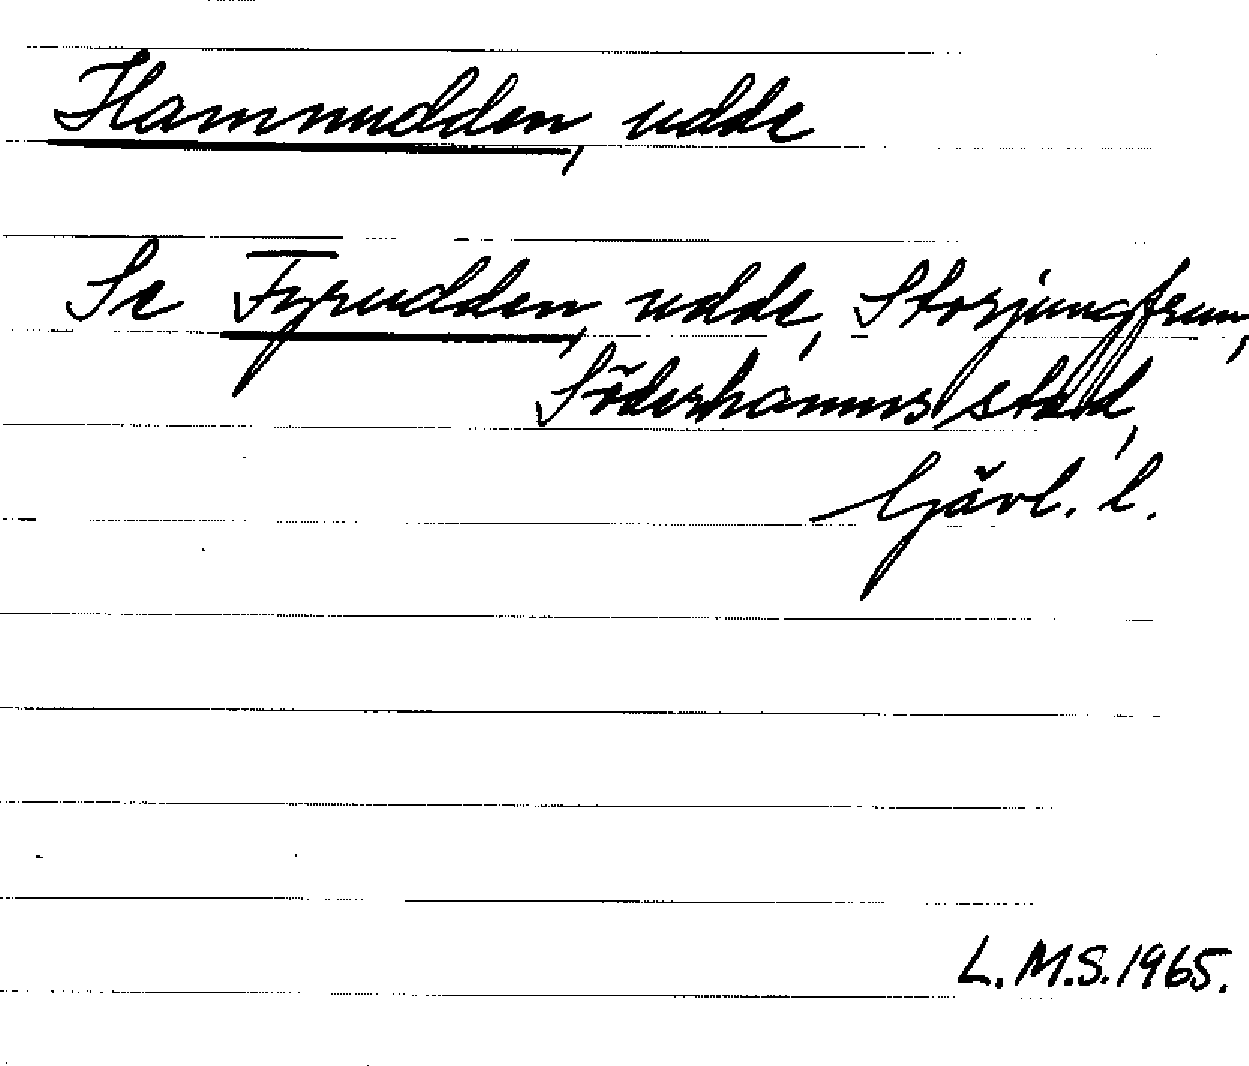 Hamnudden, udde
Se Fyrudden, udde, Storjungfrun,
Söderhamns stad,
Gävl. l.
L.M.S. 1965.